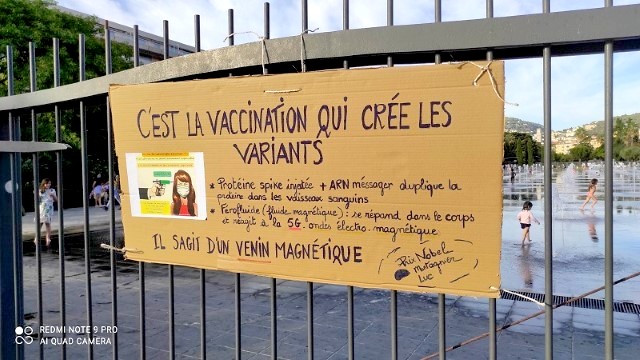 C'EST LA VACCINATION QUI CRÉE LES
VARIANTS
* Protéine spike injectée + ARN méssager duplique la
protéine dans les vaisseaux sanguins
* Férofluide (fluide magnétique) : se répand dans le corps
et réagit à la 5G. ondes électro. magnétique
IL SAGIT D'UN VENIN MAGNÉTIQUE
Prix Nobel
Montagner
Luc
REDMI NOTE 9 PRO
AI QUAD CAMERA